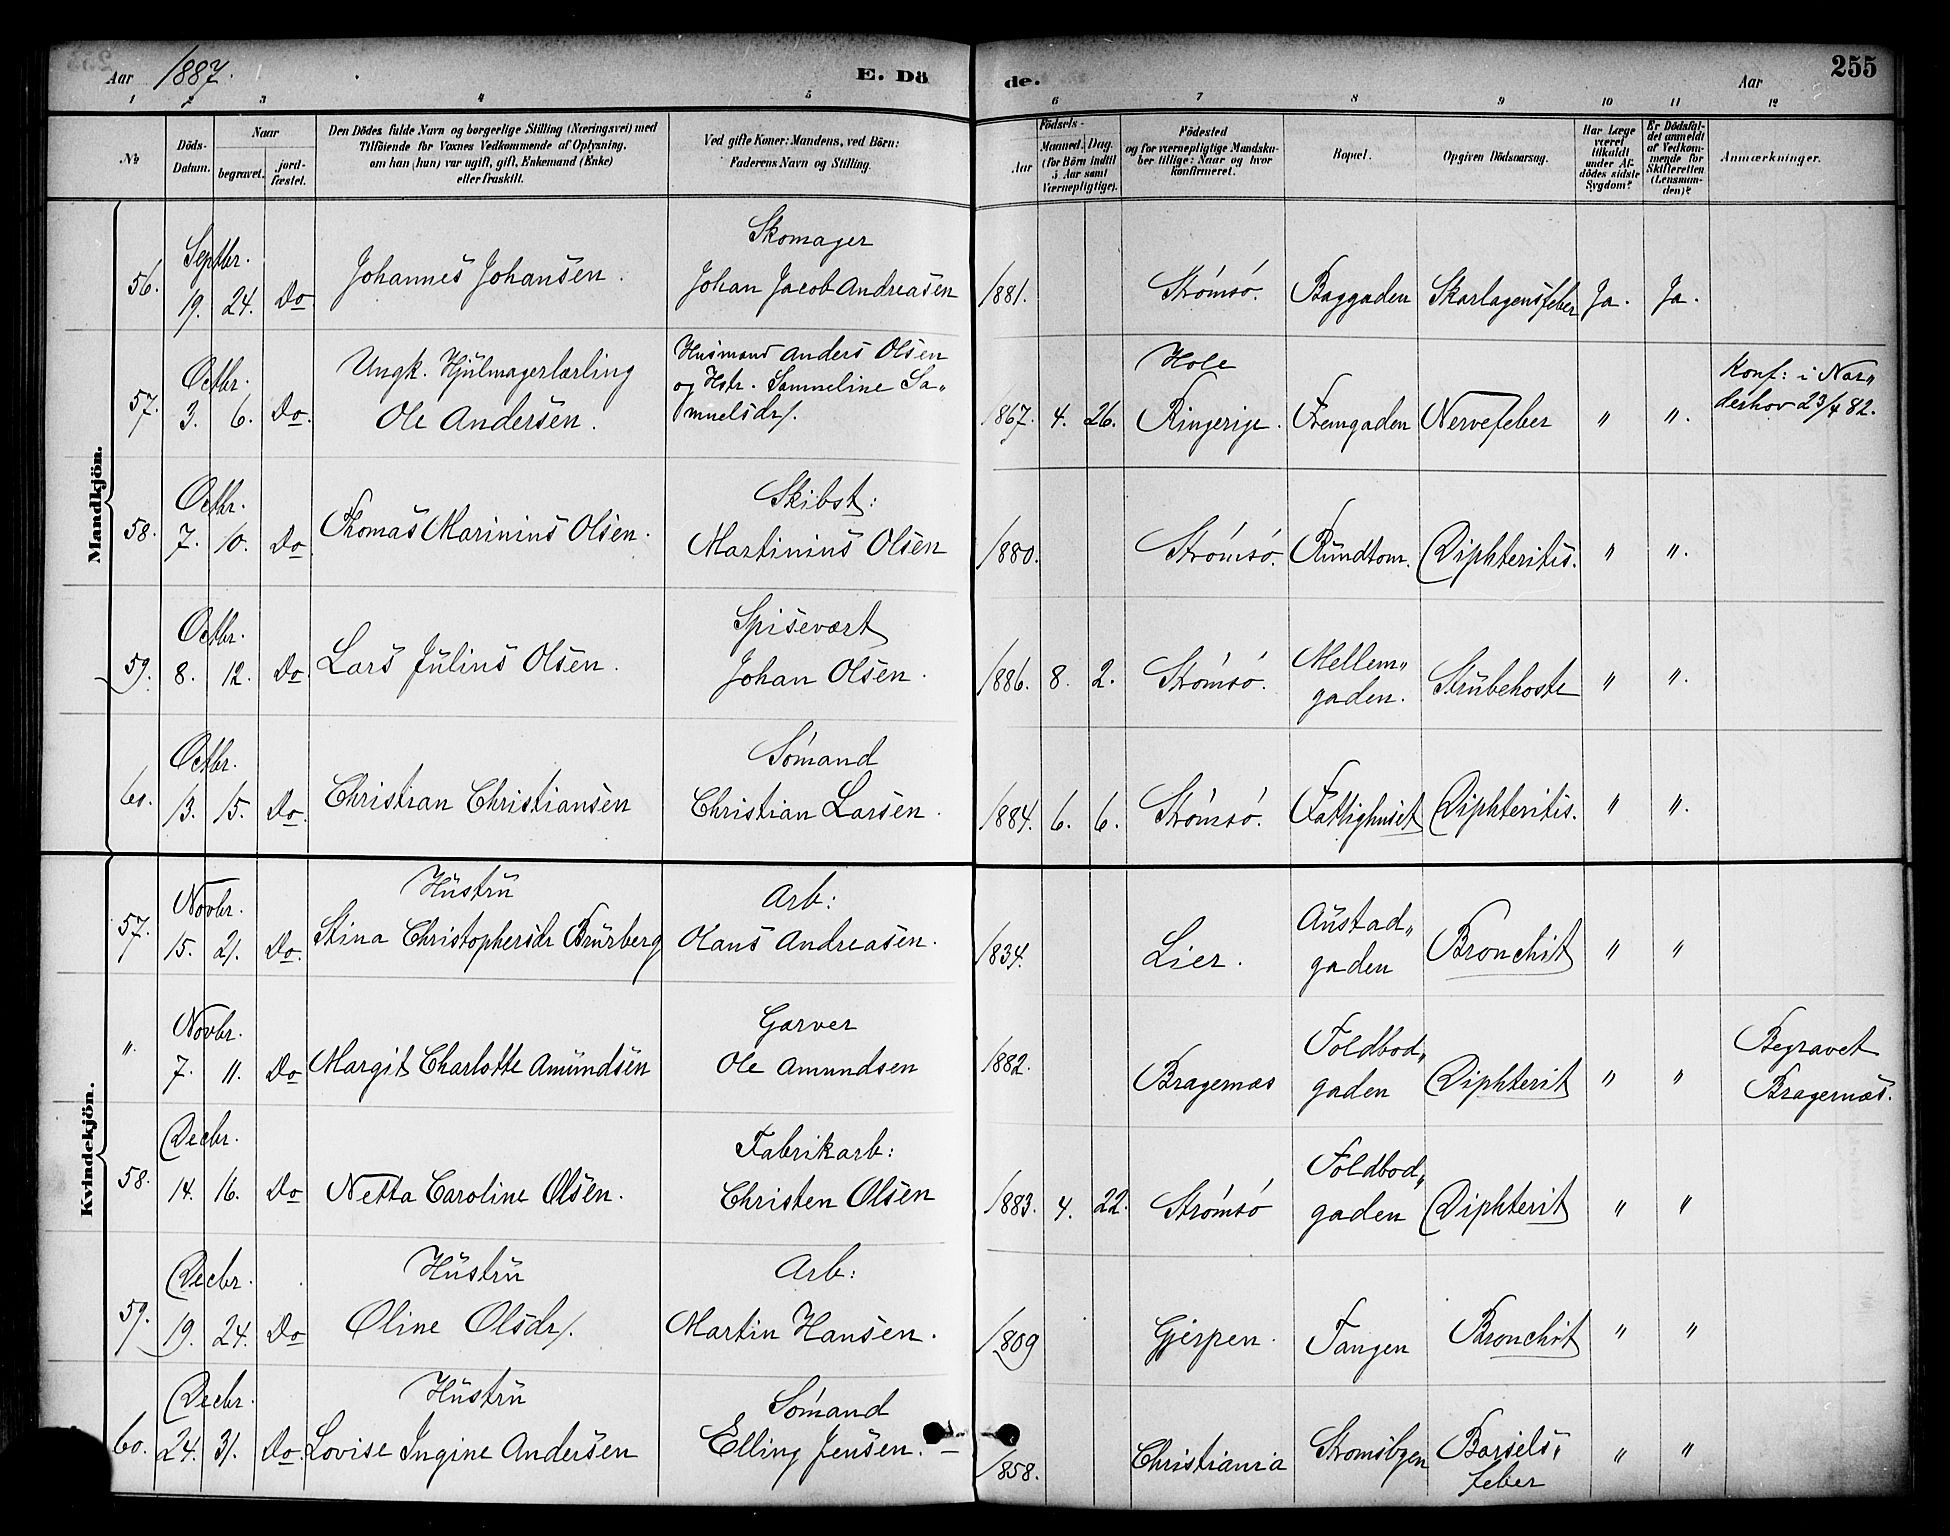 Aar 1887. E. Dö de. Aar 255
1 2 3 4 5 6 7 8 9 10 11 12
No
Döds-Datum.
Naar
begravet.
jord-fæstet.
Den Dödes fulde Navn og borgerlige Stilling (Næringsvei) med
Tilföiende for Voxnes Vedkommende af Oplysning,
om han (hun) var ugift, gift, Enkemand (Enke)
eller fraskilt.
Ved gifte Koner: Mandens, ved Börn:
Faderens Navn og Stilling.
Födsels-
Aar
Maaned. Dag.
(for Börn indtil
5 Aar samt
Værnepligtige).
Födested
og for værnepligtige Mandska-
ber tillige: Naar og hvor
konfirmeret.
Bopæl.
Opgiven Dödsaarsag.
Har Læge
været
tilkaldt
under Af-
dödes sidste
Sygdom?
Er Dödsfal-
det anmeldt
af Vedkom-
mende for
Skifteretten
(Lensman-
den)?
Anmærkninger.
Mandkjön.
Septbr. Skomager
56. 19. 24. Do Johannes Johansen. Johan Jacob Andreasen 1881. Strømsø. Baggaden Skarlagensfeber Ja. Ja.
Octbr. Ungk. Hjulmagerlærling Husmand Anders Olsen Hole Konf: i Nor„
og Hstr. Sammeline Sa„ derhov 23/4 82.
57. 3. 6. Do. Ole Andersen. muelsdr/. 1867. 4. 26. Ringerige. Fremgaden Nervefeber " ".
Octbr. Skibst:
58. 7. 10. Do Thomas Marinius Olsen. Martinius Olsen 1880. Strømsø. Rundtom. Diphteritis. " ".
Octbr. Spisevært Mellem„
59. 8. 12. Do Lars Julius Olsen. Johan Olsen. 1886. 8. 2. Strømsø. gaden. Strubehoste " ".
Octbr. Sømand
60. 13. 15. Do. Christian Christiansen Christian Larsen. 1884. 6. 6. Strømsø. Fattighuset Diphteritis. " ".
Kvindekjön.
Novbr. Hustru Arb: Austad„
57. 15. 21. Do. Stina Christophersdr Brurberg Olaus Andreasen. 1834. Lier. gaden Bronchit " "
Novbr. Garver Toldbod„ Begravet
". 7. 11. Do Margit Charlotte Amundsen Ole Amundsen 1882. Bragernæs gaden Diphterit " " Bragernæs.
Decbr. Fabrikarb: Toldbod„
58. 14. 16. Do Netta Caroline Olsen. Christen Olsen 1883. 4. 22. Strømsø gaden Diphterit " "
Decbr. Hustru Arb:
59. 19. 24. Do Oline Olsdr/. Martin Hansen. 1809 Gjerpen. Tangen Bronchit " "
Decbr. Hustru Sømand
60. 24. 31. Do. Lovise Ingine Andersen Elling Jensen. 1858. Christiania Strømsbyen Barsels„ " "
feber